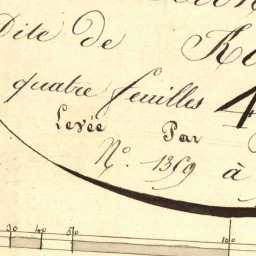 Dite de
quatre feuilles 4
Levée Par
N.º 1359 à
30 40 50 10